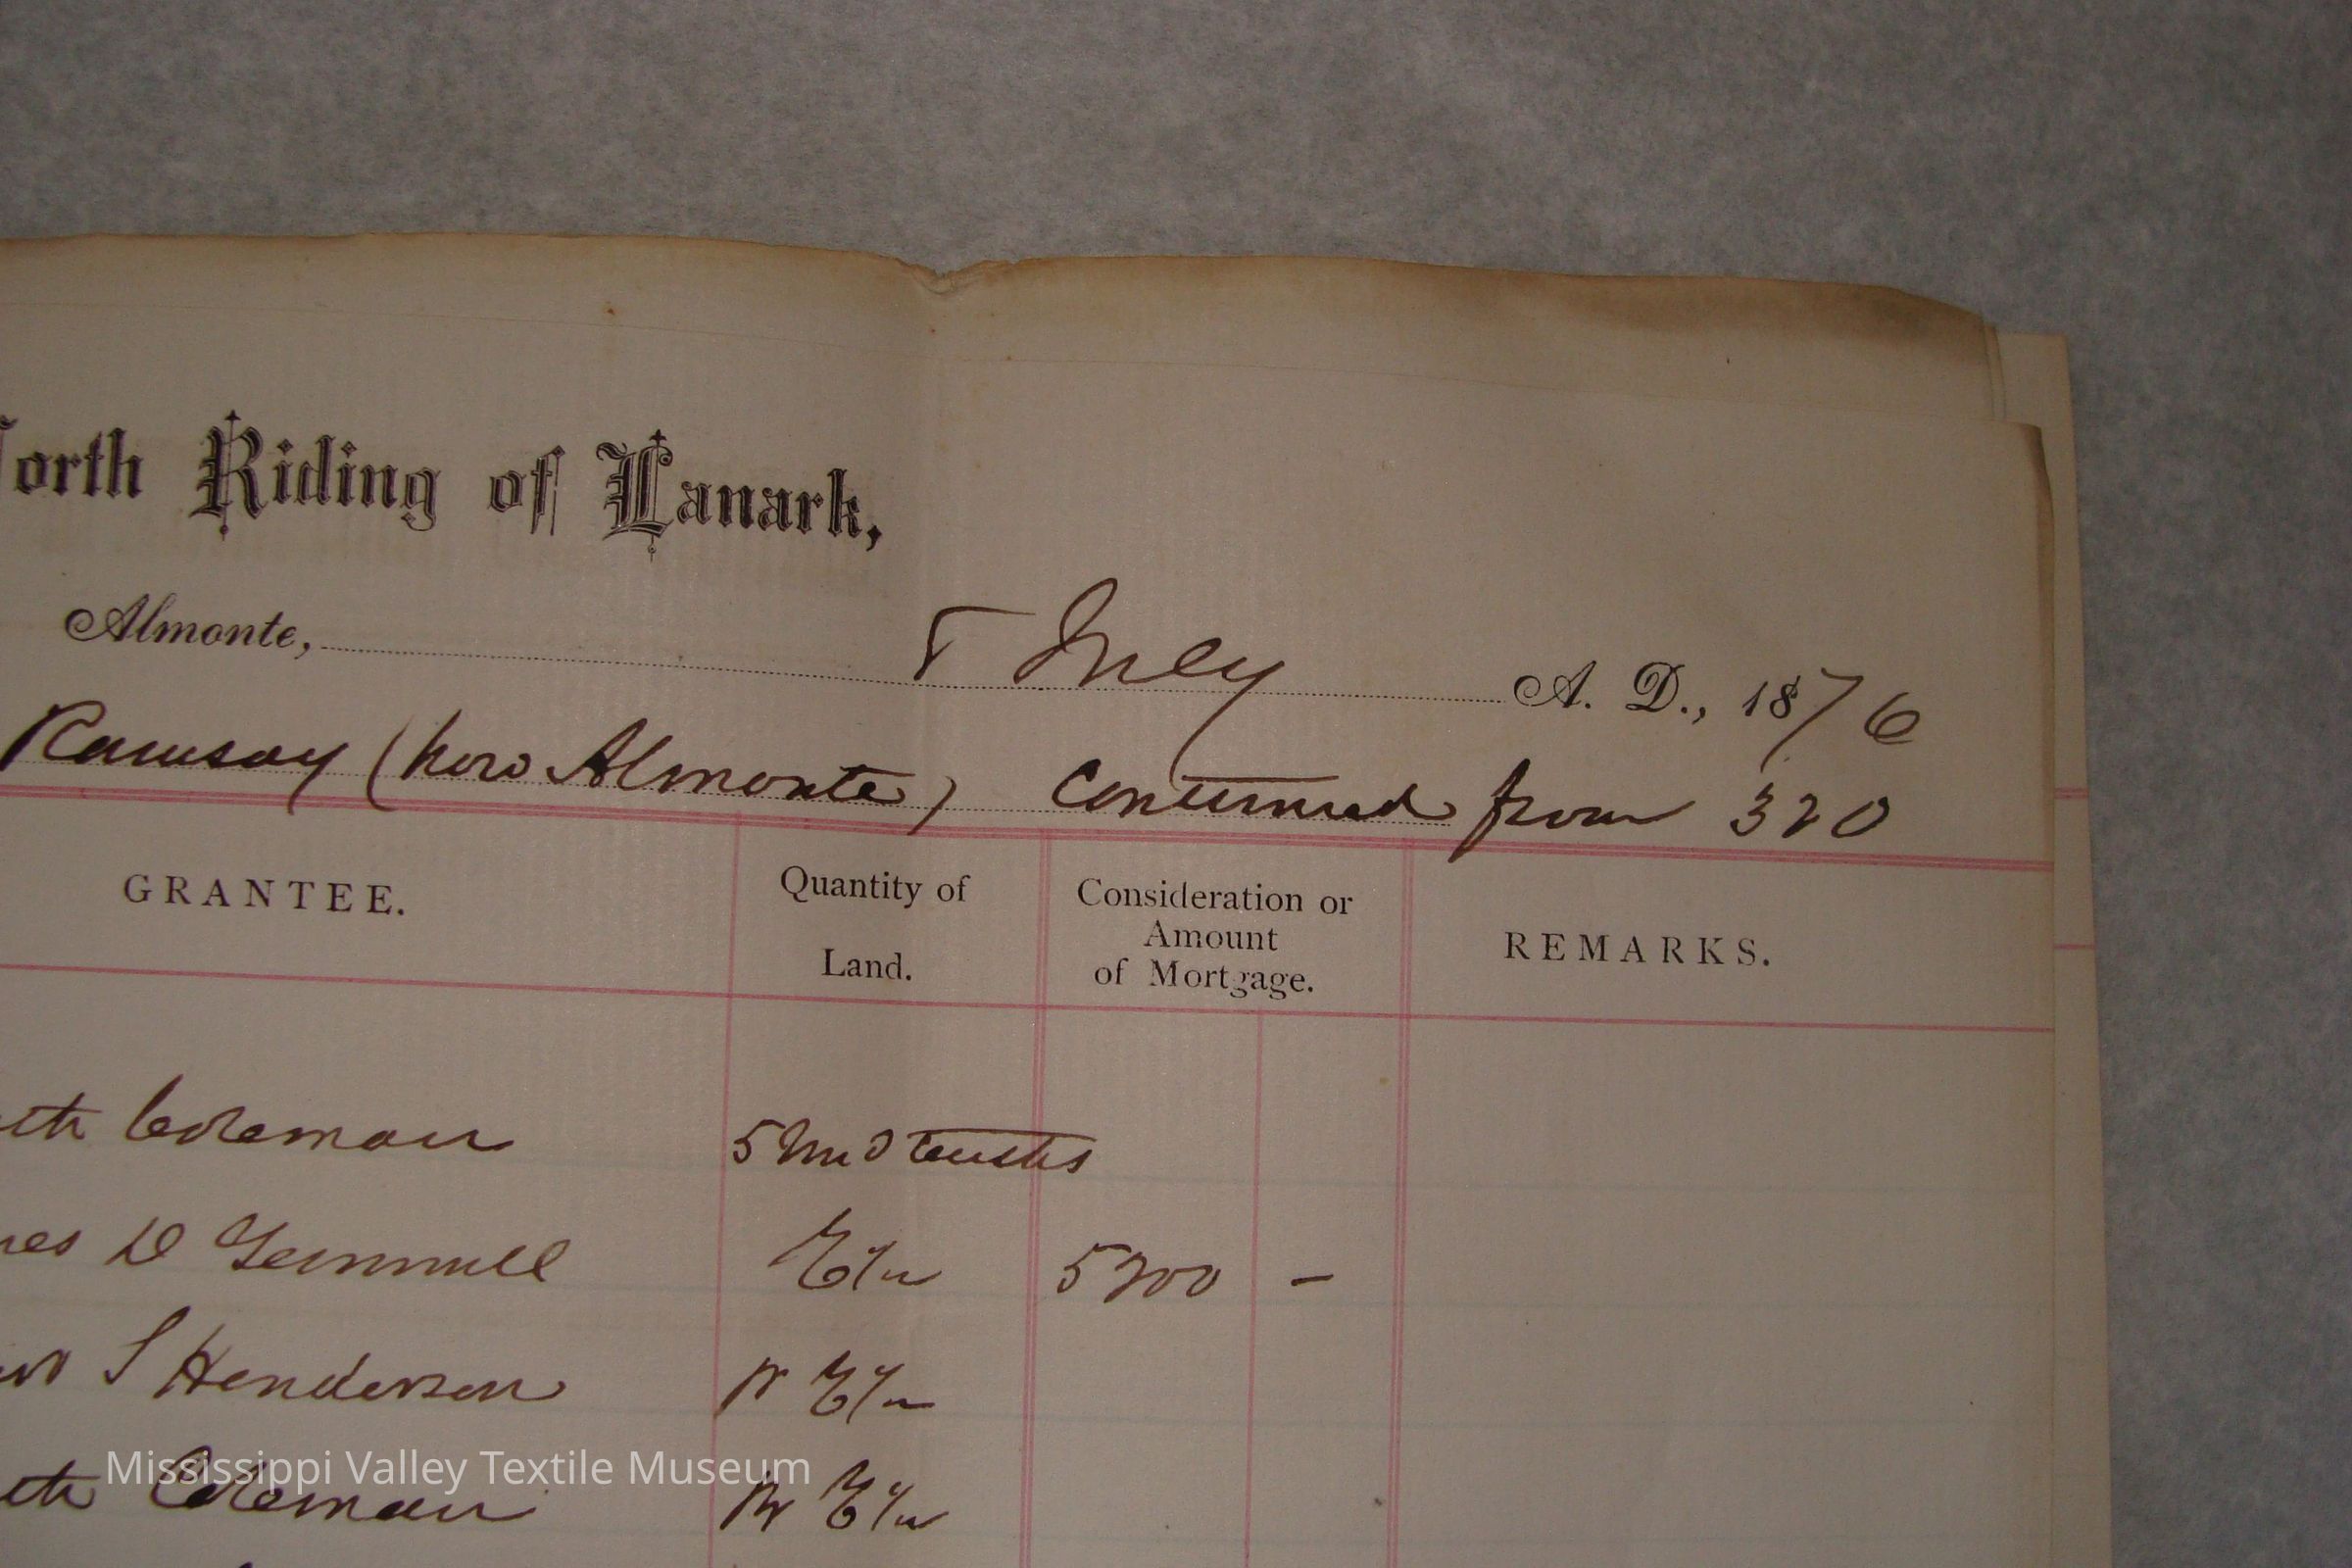 orth Riding of Lanark,
Almonte, July A. D., 1876
Ramsay (now Almonte) Continued from 320
GRANTEE. Quantity of Land. Consideration or Amount of Mortgage. REMARKS.
eth Coleman 5
es D Gemmill E½ 5200 –
S Henderson Pt E½
eth Coleman Pt E½
Mississippi Valley Textile Museum